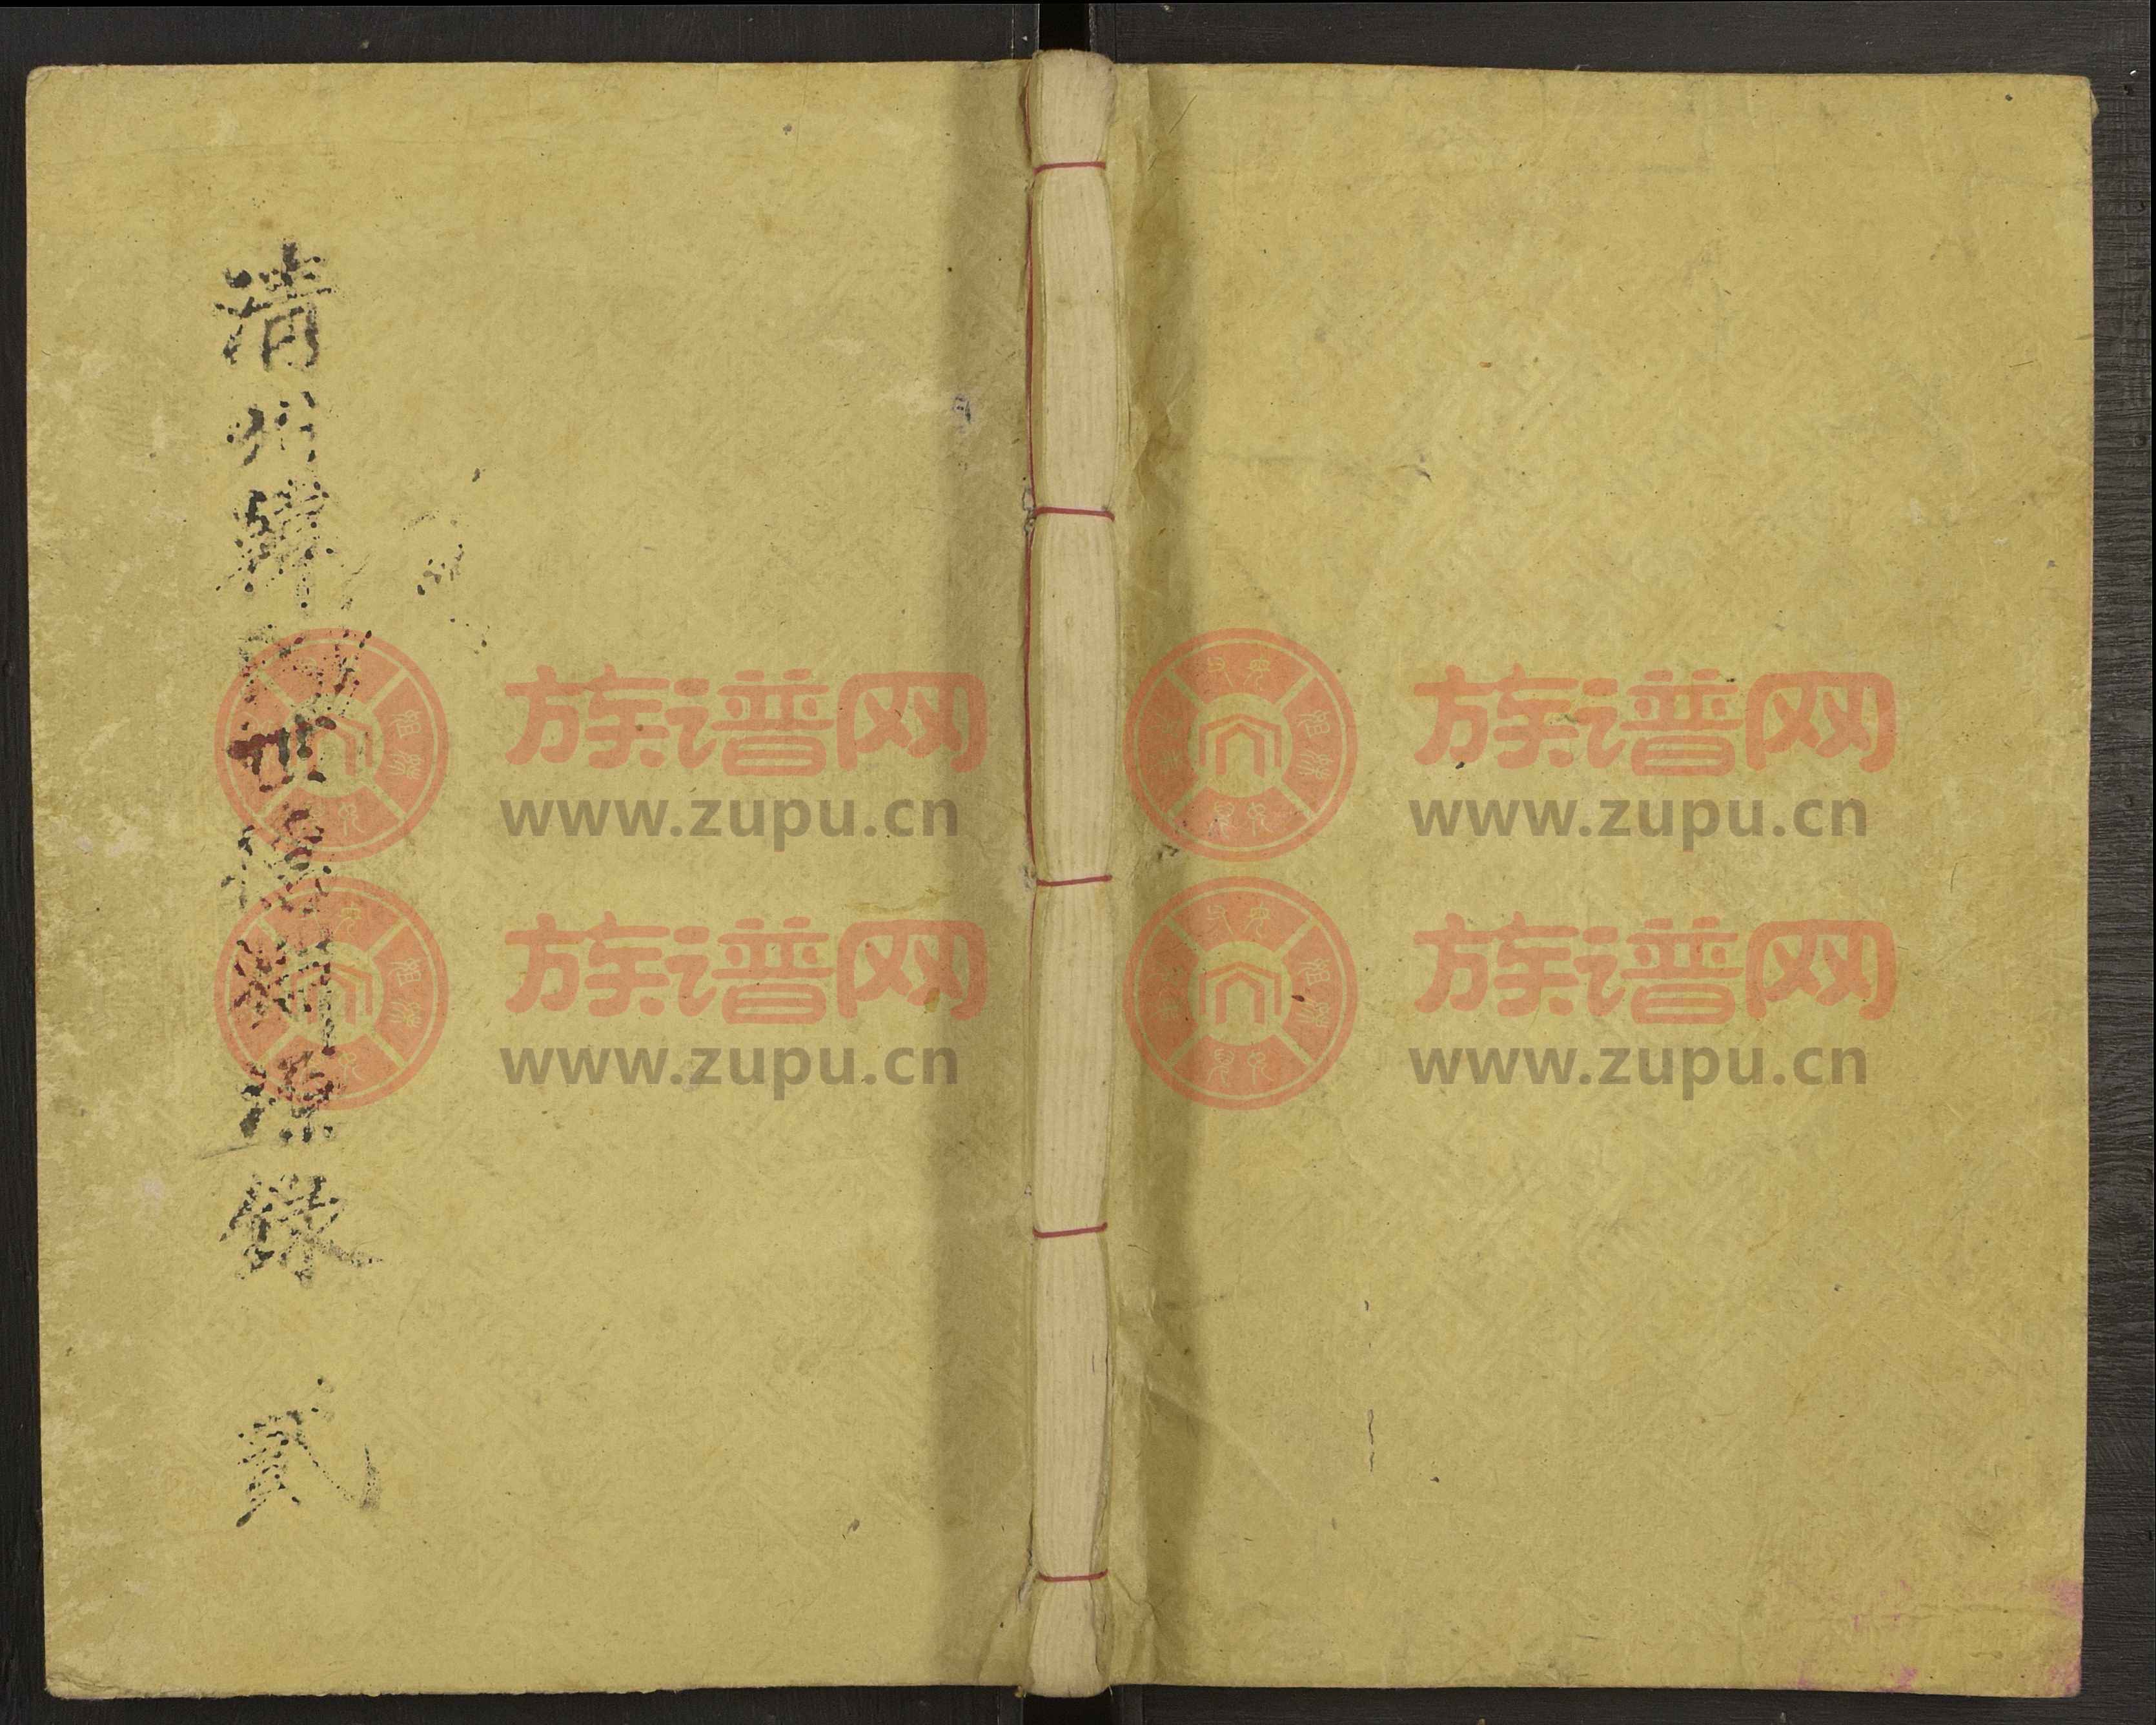 清州韓氏世德譜源錄 貳
族谱网
www.zupu.cn
族谱网
www.zupu.cn
族谱网
www.zupu.cn
族谱网
www.zupu.cn